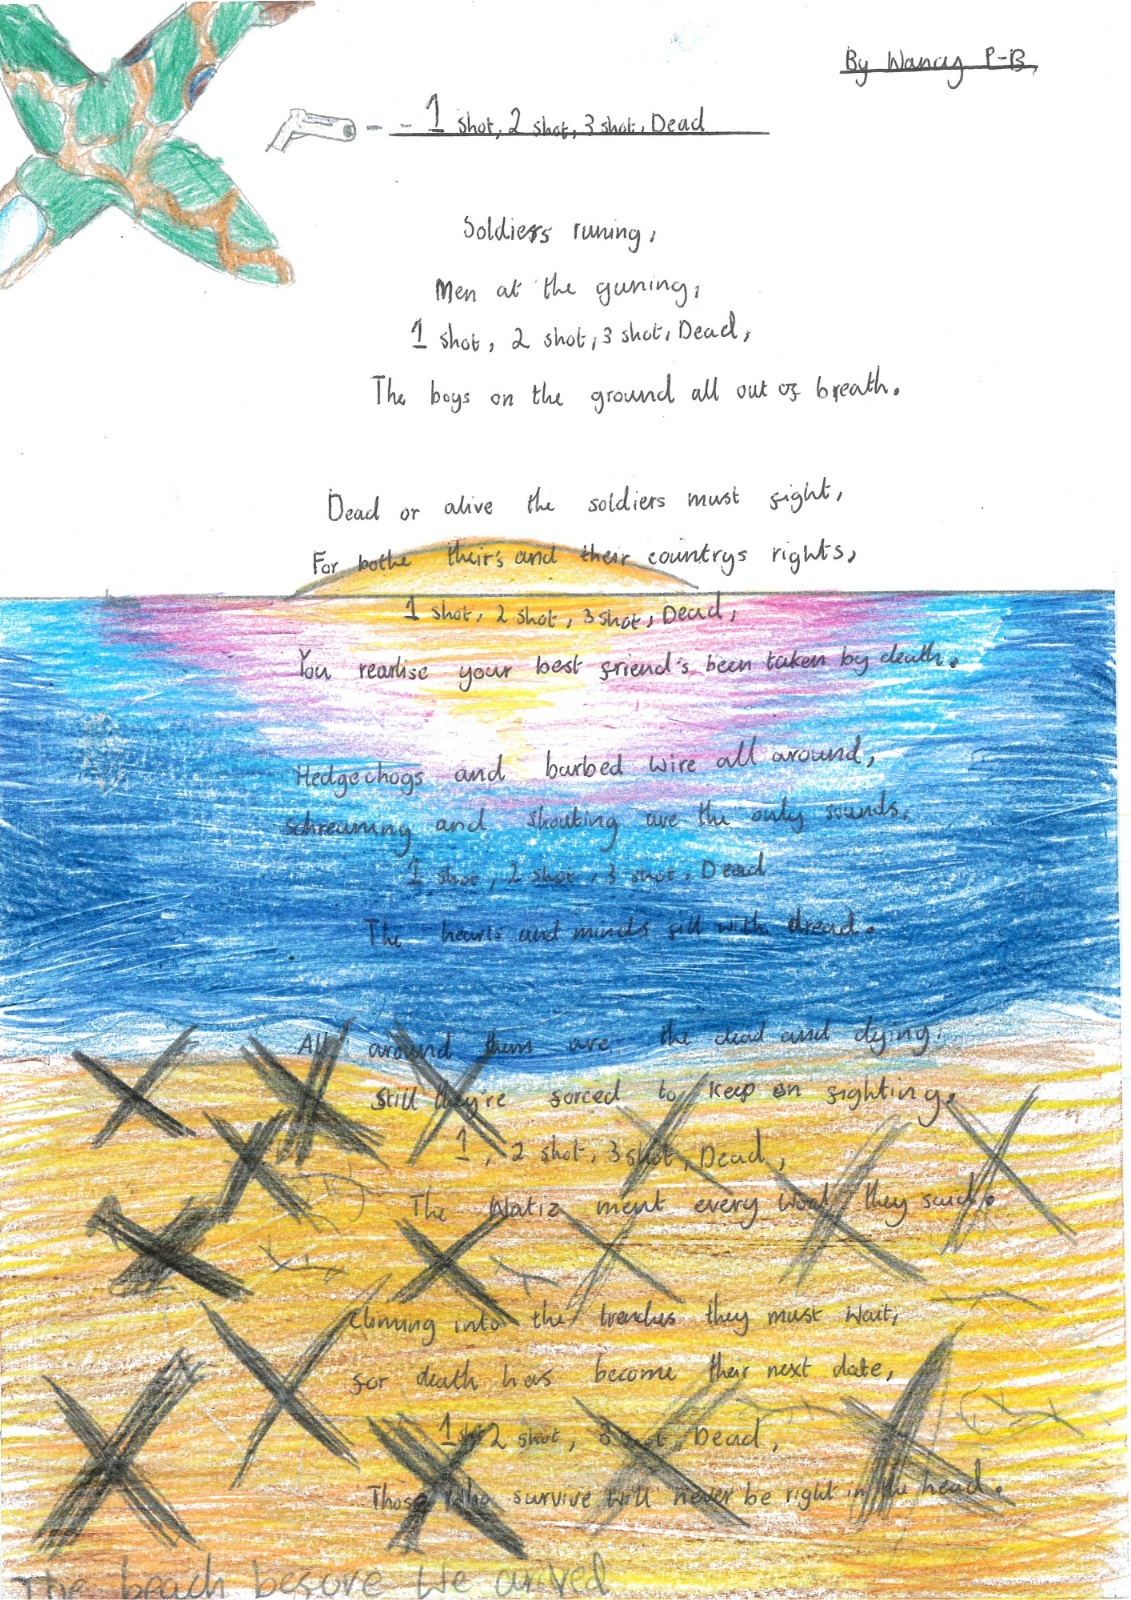 By Nancy P-B
1 shot, 2 shot, 3 shot, Dead
Soldiers runing,
Men at the guning,
1 shot, 2 shot, 3 shot, Dead,
The boys on the ground all out of breath.
Dead or alive the soldiers must fight,
For bothe their's and their countrys rights,
1 shot, 2 shot, 3 shot, Dead,
You rearlise your best friend's been taken by death.
Hedgechogs and barbed wire all around,
schreaming and shouting are the only sounds,
1 shot, 2 shot, 3 shot, Dead
The hearts and minds fill with dread.
All around them are the dead and dying,
Still they're forced to keep on fighting,
1, 2 shot, 3 shot, Dead,
The Natiz ment every word they said.
Climing into the trenches they must wait,
for death has become their next date,
1 shot 2 shot, 3 shot, Dead,
Those who survive will never be right in the head.
The beach before we arrived